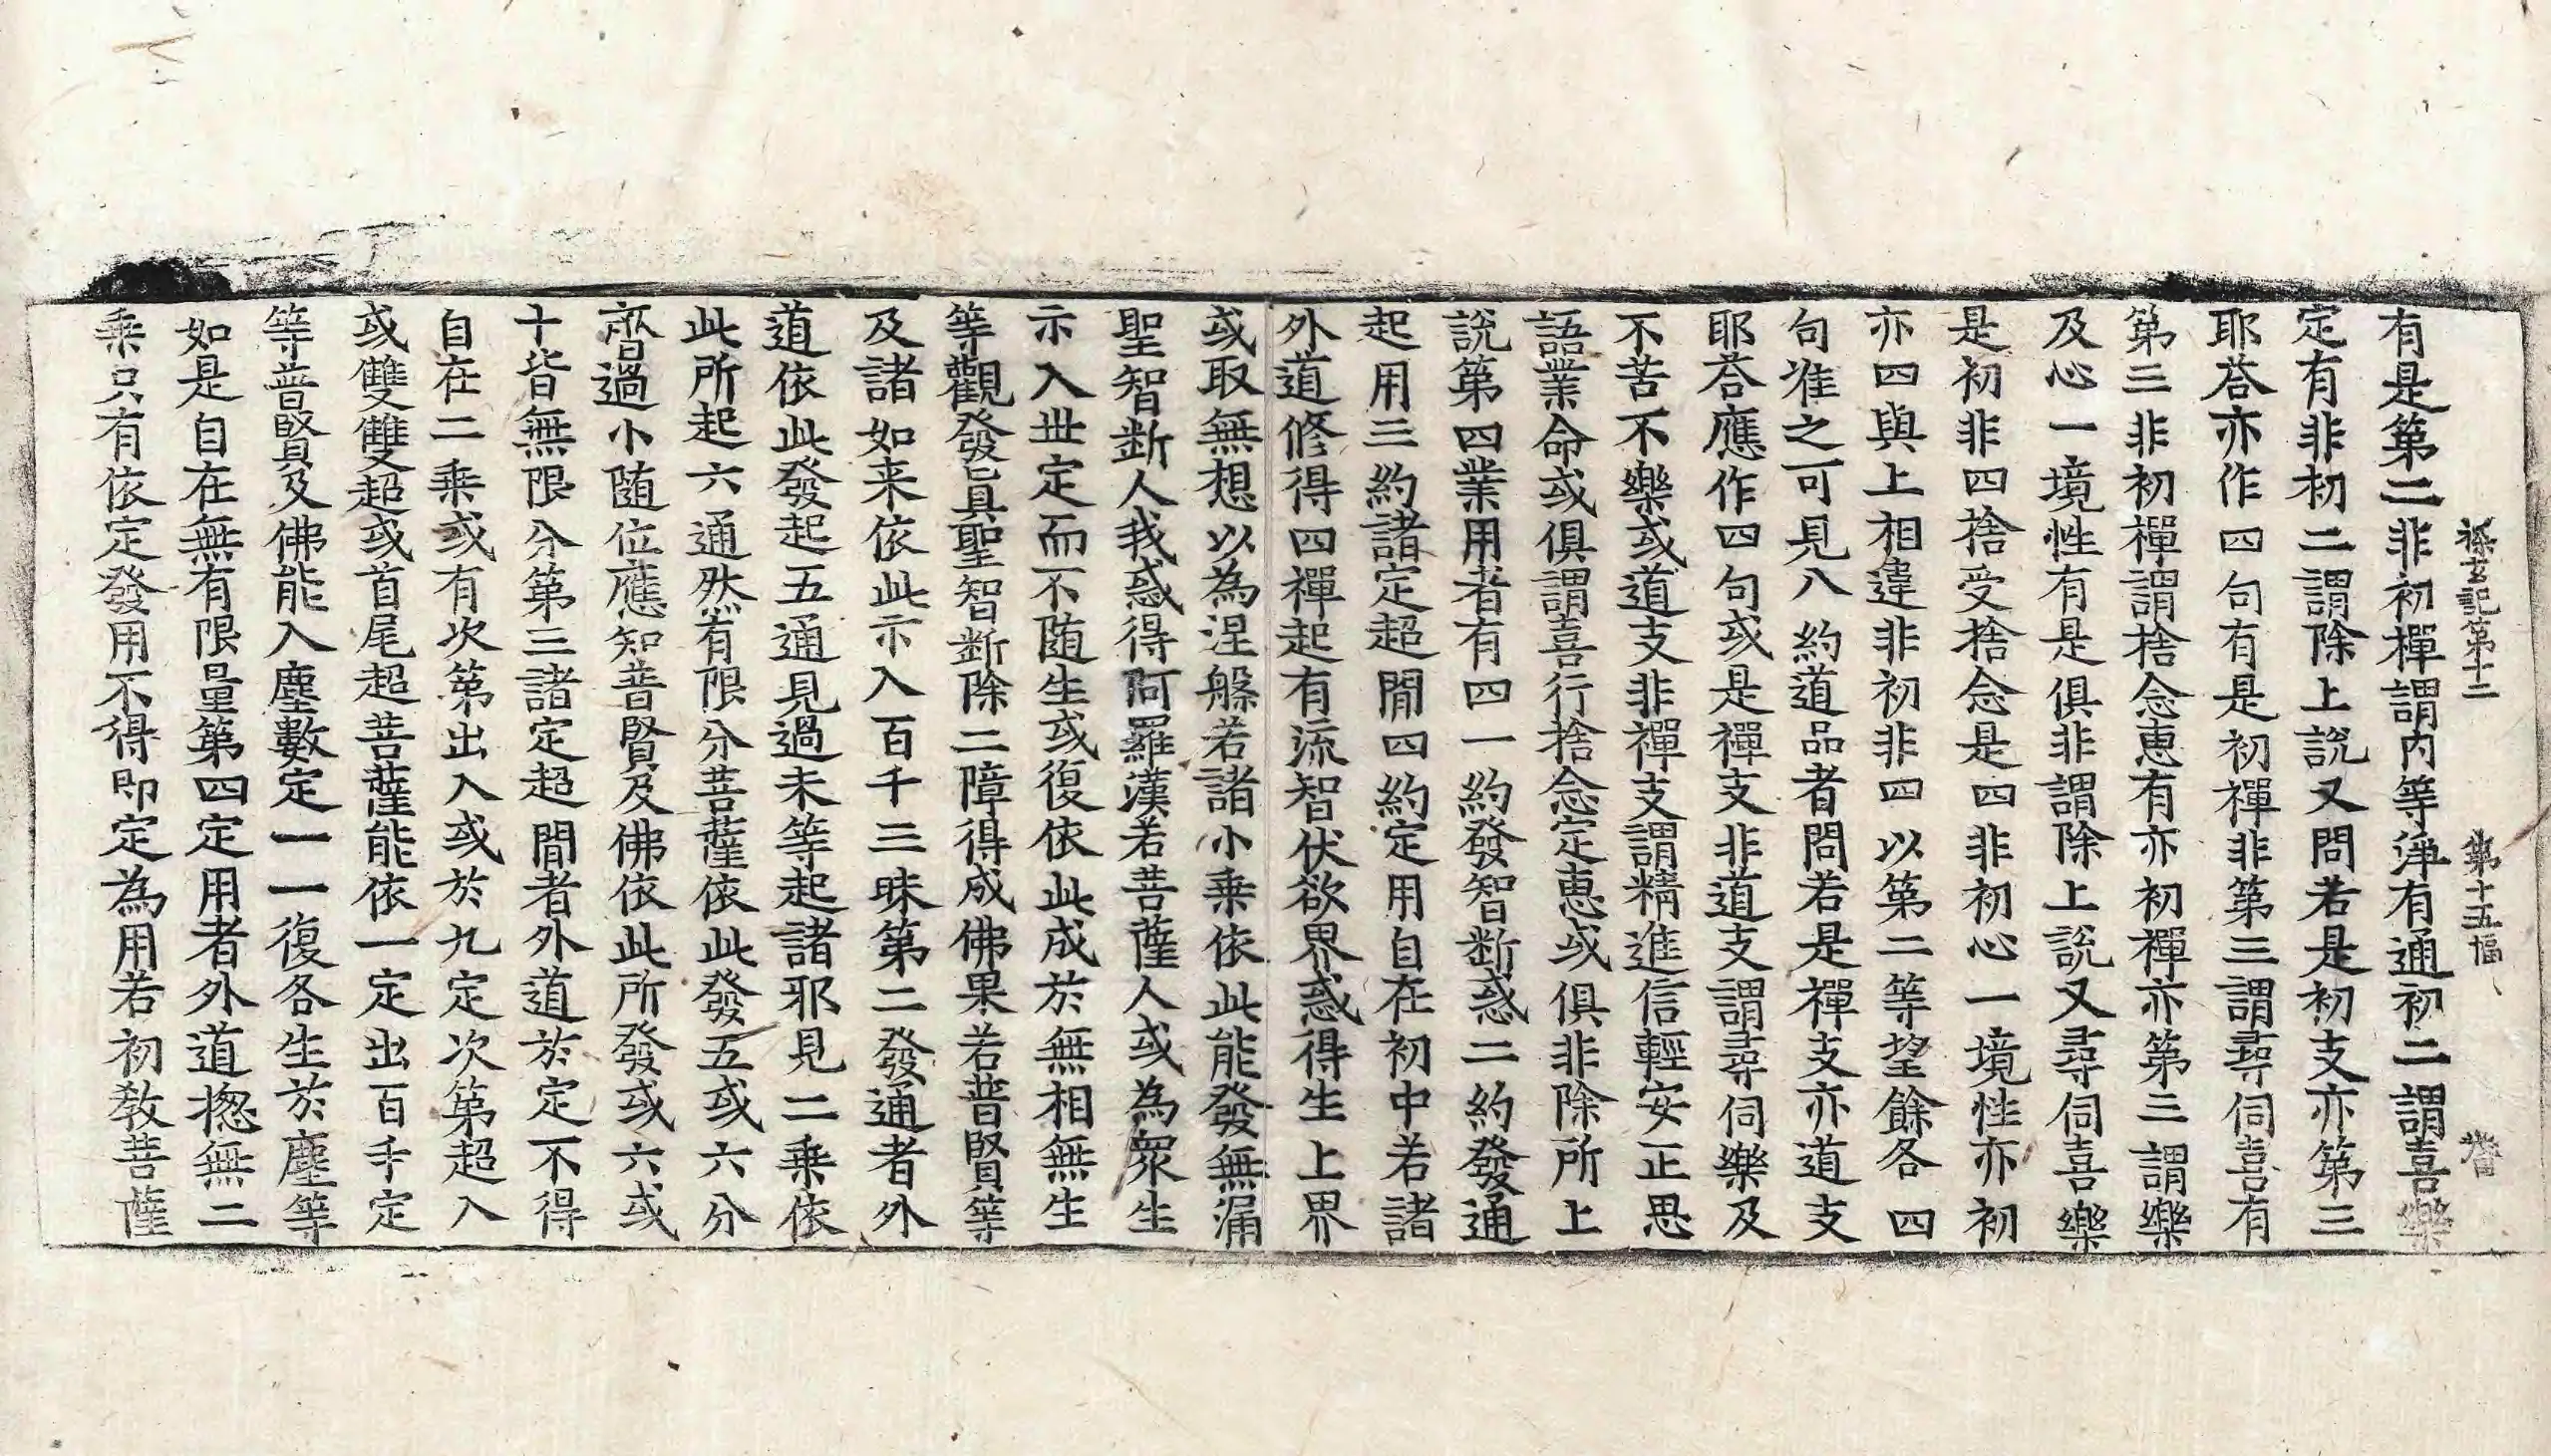 探玄記第十二 第十五幅 
有是第二非初禪謂內等淨有通初二謂喜樂
定有非初二謂除上說又問若是初支亦第三
耶荅亦作四句有是初禪非第三謂尋伺喜有
第三非初禪謂捨念惠有亦初禪亦第三謂樂
及心一境性有是俱非謂除上說又尋伺喜樂
是初非四捨受捨念是四非初心一境性亦初
亦四與上相違非初非四以第二等望餘各四
句准之可見八約道品者問若是禪支亦道支
耶荅應作四句或是禪支非道支謂尋伺樂及
不苦不樂或道支非禪支謂精進信輕安正思
語業命或俱謂喜行捨念定惠或俱非除所上
說第四業用者有四一約發智斷惑二約發通
起用三約諸定超間四約定用自在初中若諸
外道修得四禪起有流智伏欲界惑得生上界
或取無想以為涅槃若諸小乘依此能發無漏
聖智断人我惑得阿羅漢若菩薩人或為衆生
示入世定而不随生或復依此成於無相無生
等觀發真聖智断除二障得成佛果若普賢等
及諸如来依此示入百千三昧第二發通者外
道依此發起五通見過未等起諸邪見二乘依
此所起六通然有限分菩薩依此發五或六分
齊過小随位應知普賢及佛依此所發或六或
十皆無限分第三諸定超間者外道於定不得
自在二乘或有次第出入或於九定次第超入
或雙雙超或首尾超菩薩能依一定出百千定
等普賢及佛能入塵數定一一復各生於塵等
如是自在無有限量第四定用者外道揔無二
乘只有依定發用不得即定為用若初教菩薩